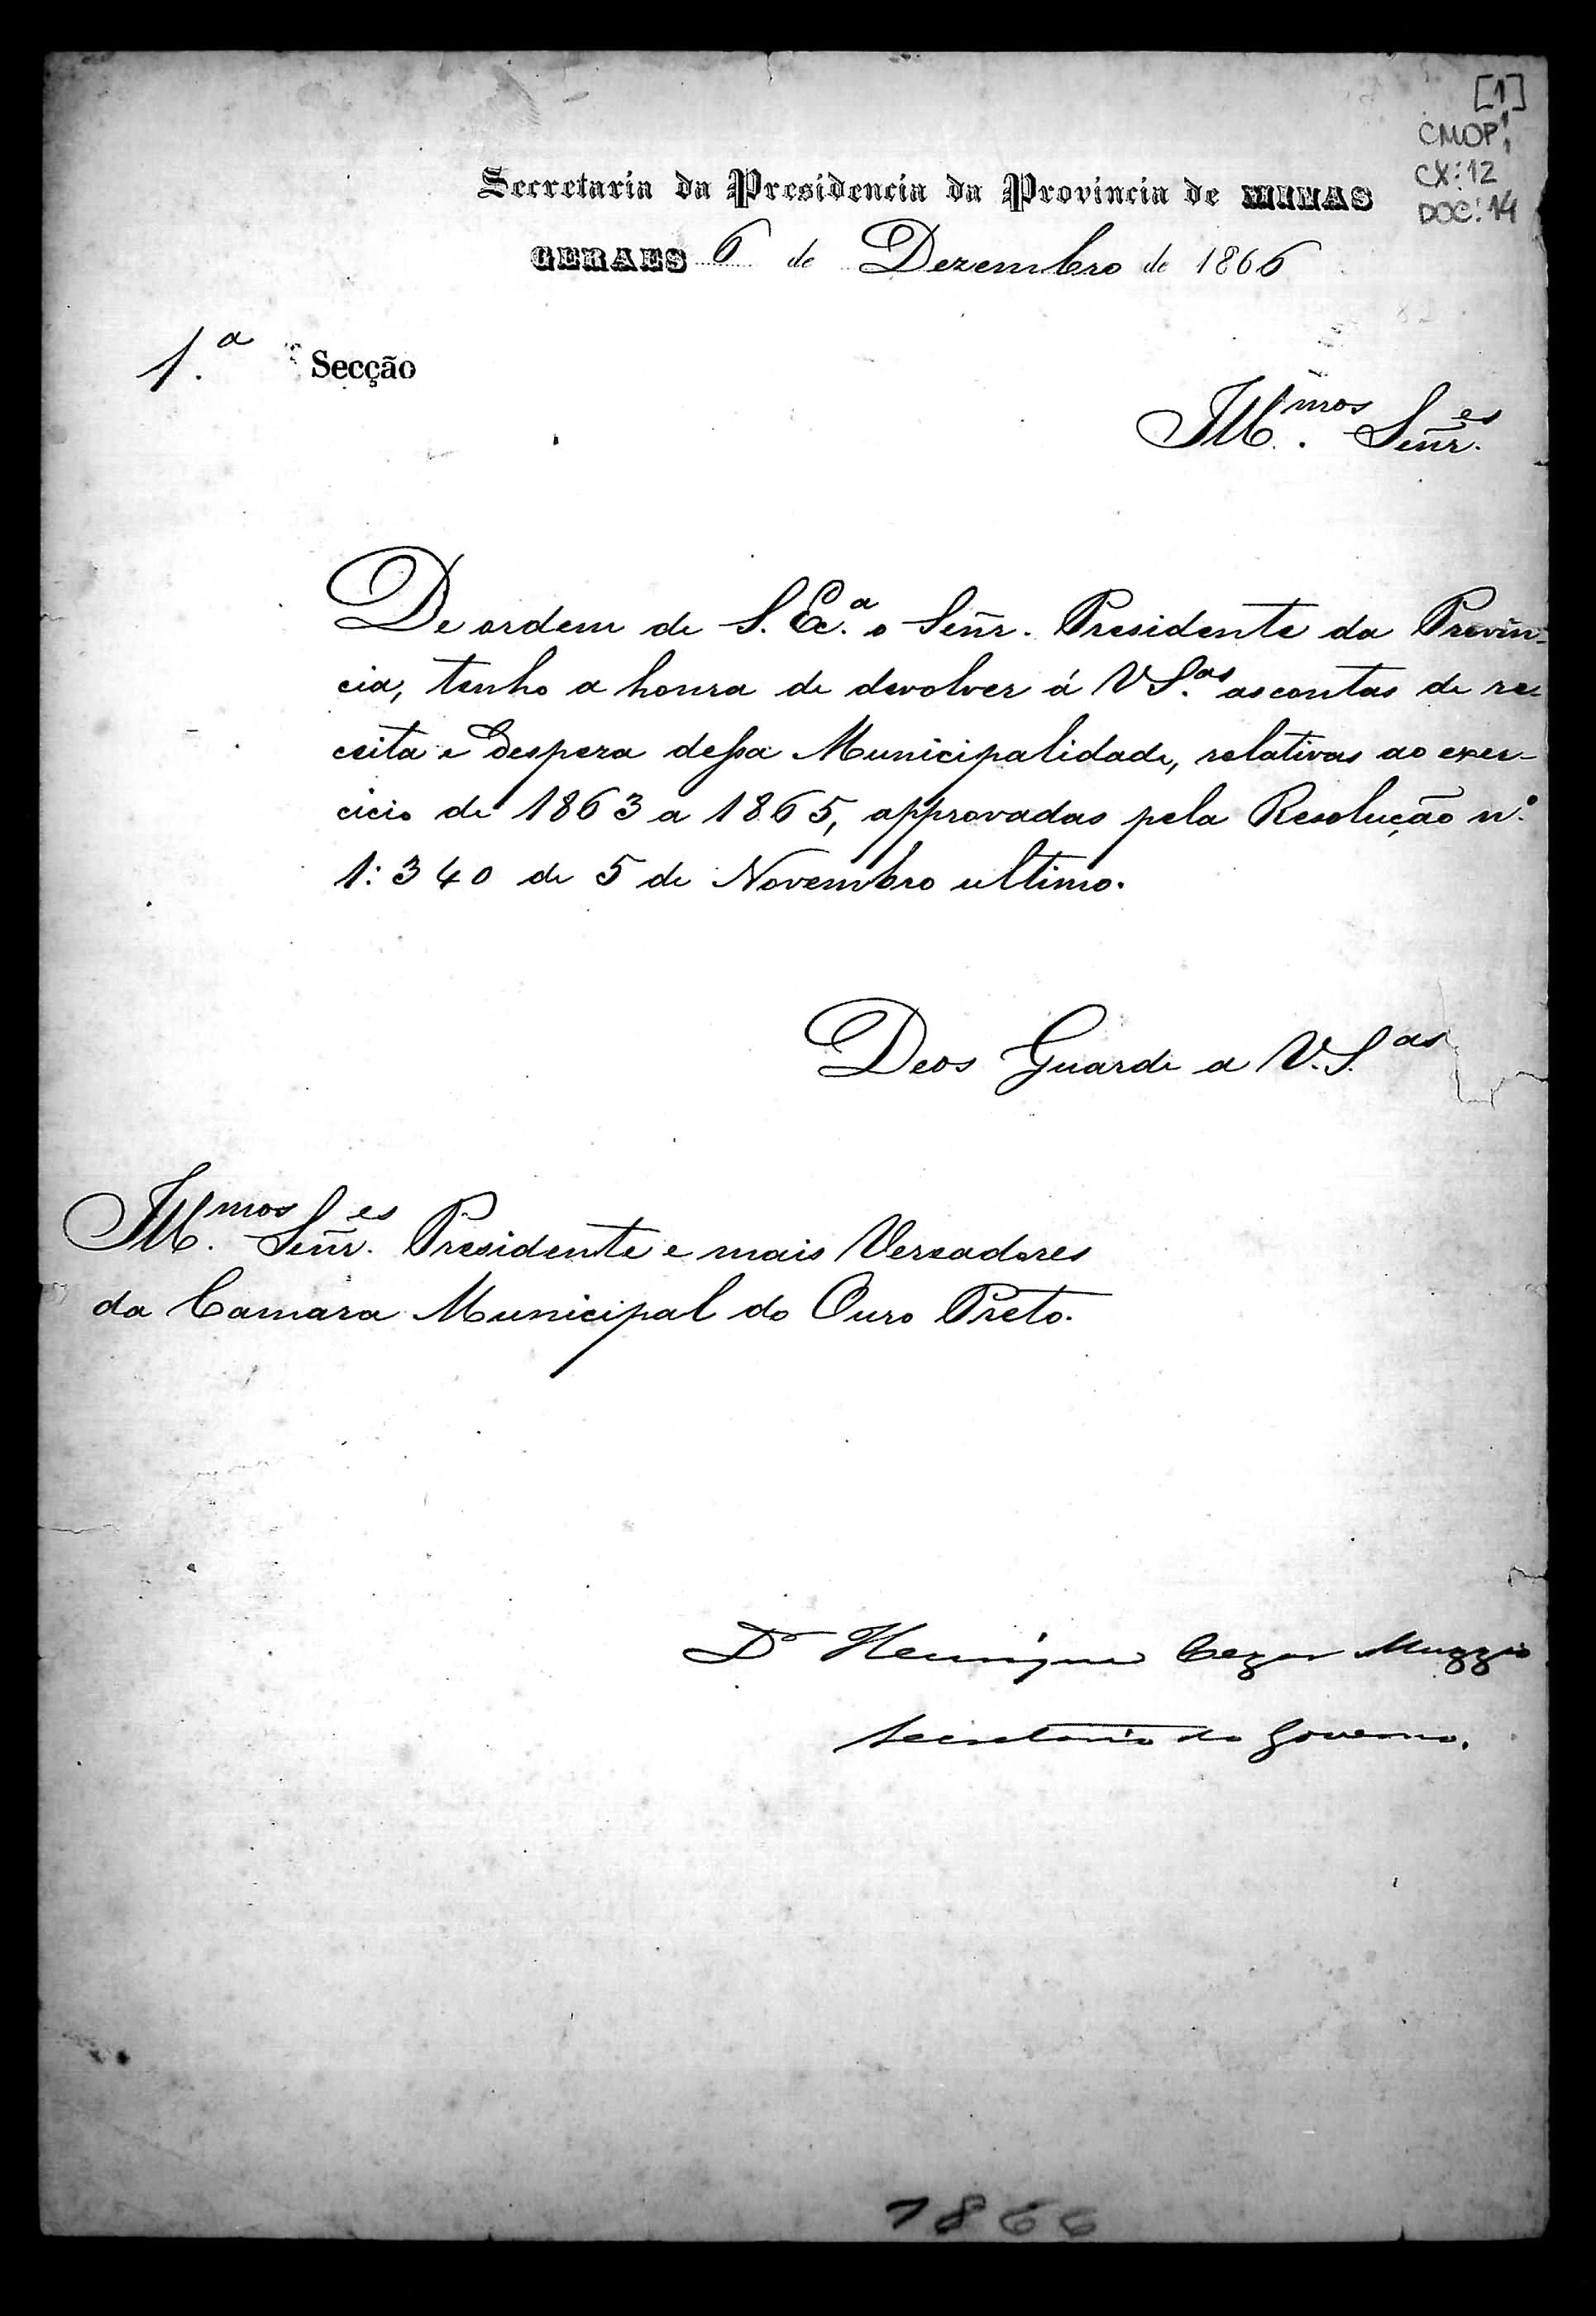 [1]
CMOP 1/1
CX: 12
DOC: 14
Secretaria da Presidencia da Provincia de MINAS
GERAES 6 de Dezembro de 1866
1.ª Secção
Ill.mos Señr.es
De ordem de S. Ex.ª o Señr. Presidente da Provin-
cia, tenho a honra de devolver á VS.as as contas de re-
ceita e despeza dessa Municipalidade, relativas ao exer-
cicio de 1863 a 1865, approvadas pela Resolução n.º
1:340 de 5 de Novembro ultimo.
Deos Guarde a V.S.as
Ill.mos Señr.es Presidente e mais Vereadores
da Camara Municipal do Ouro Preto.
Dr Henrique Cezar Muzzio
Secretario do Governo.
1866